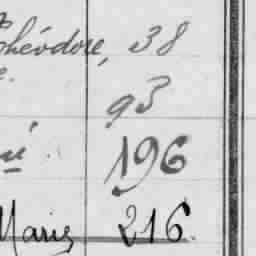 Théodore, 38
e.
93
né. 196
Marie 216.